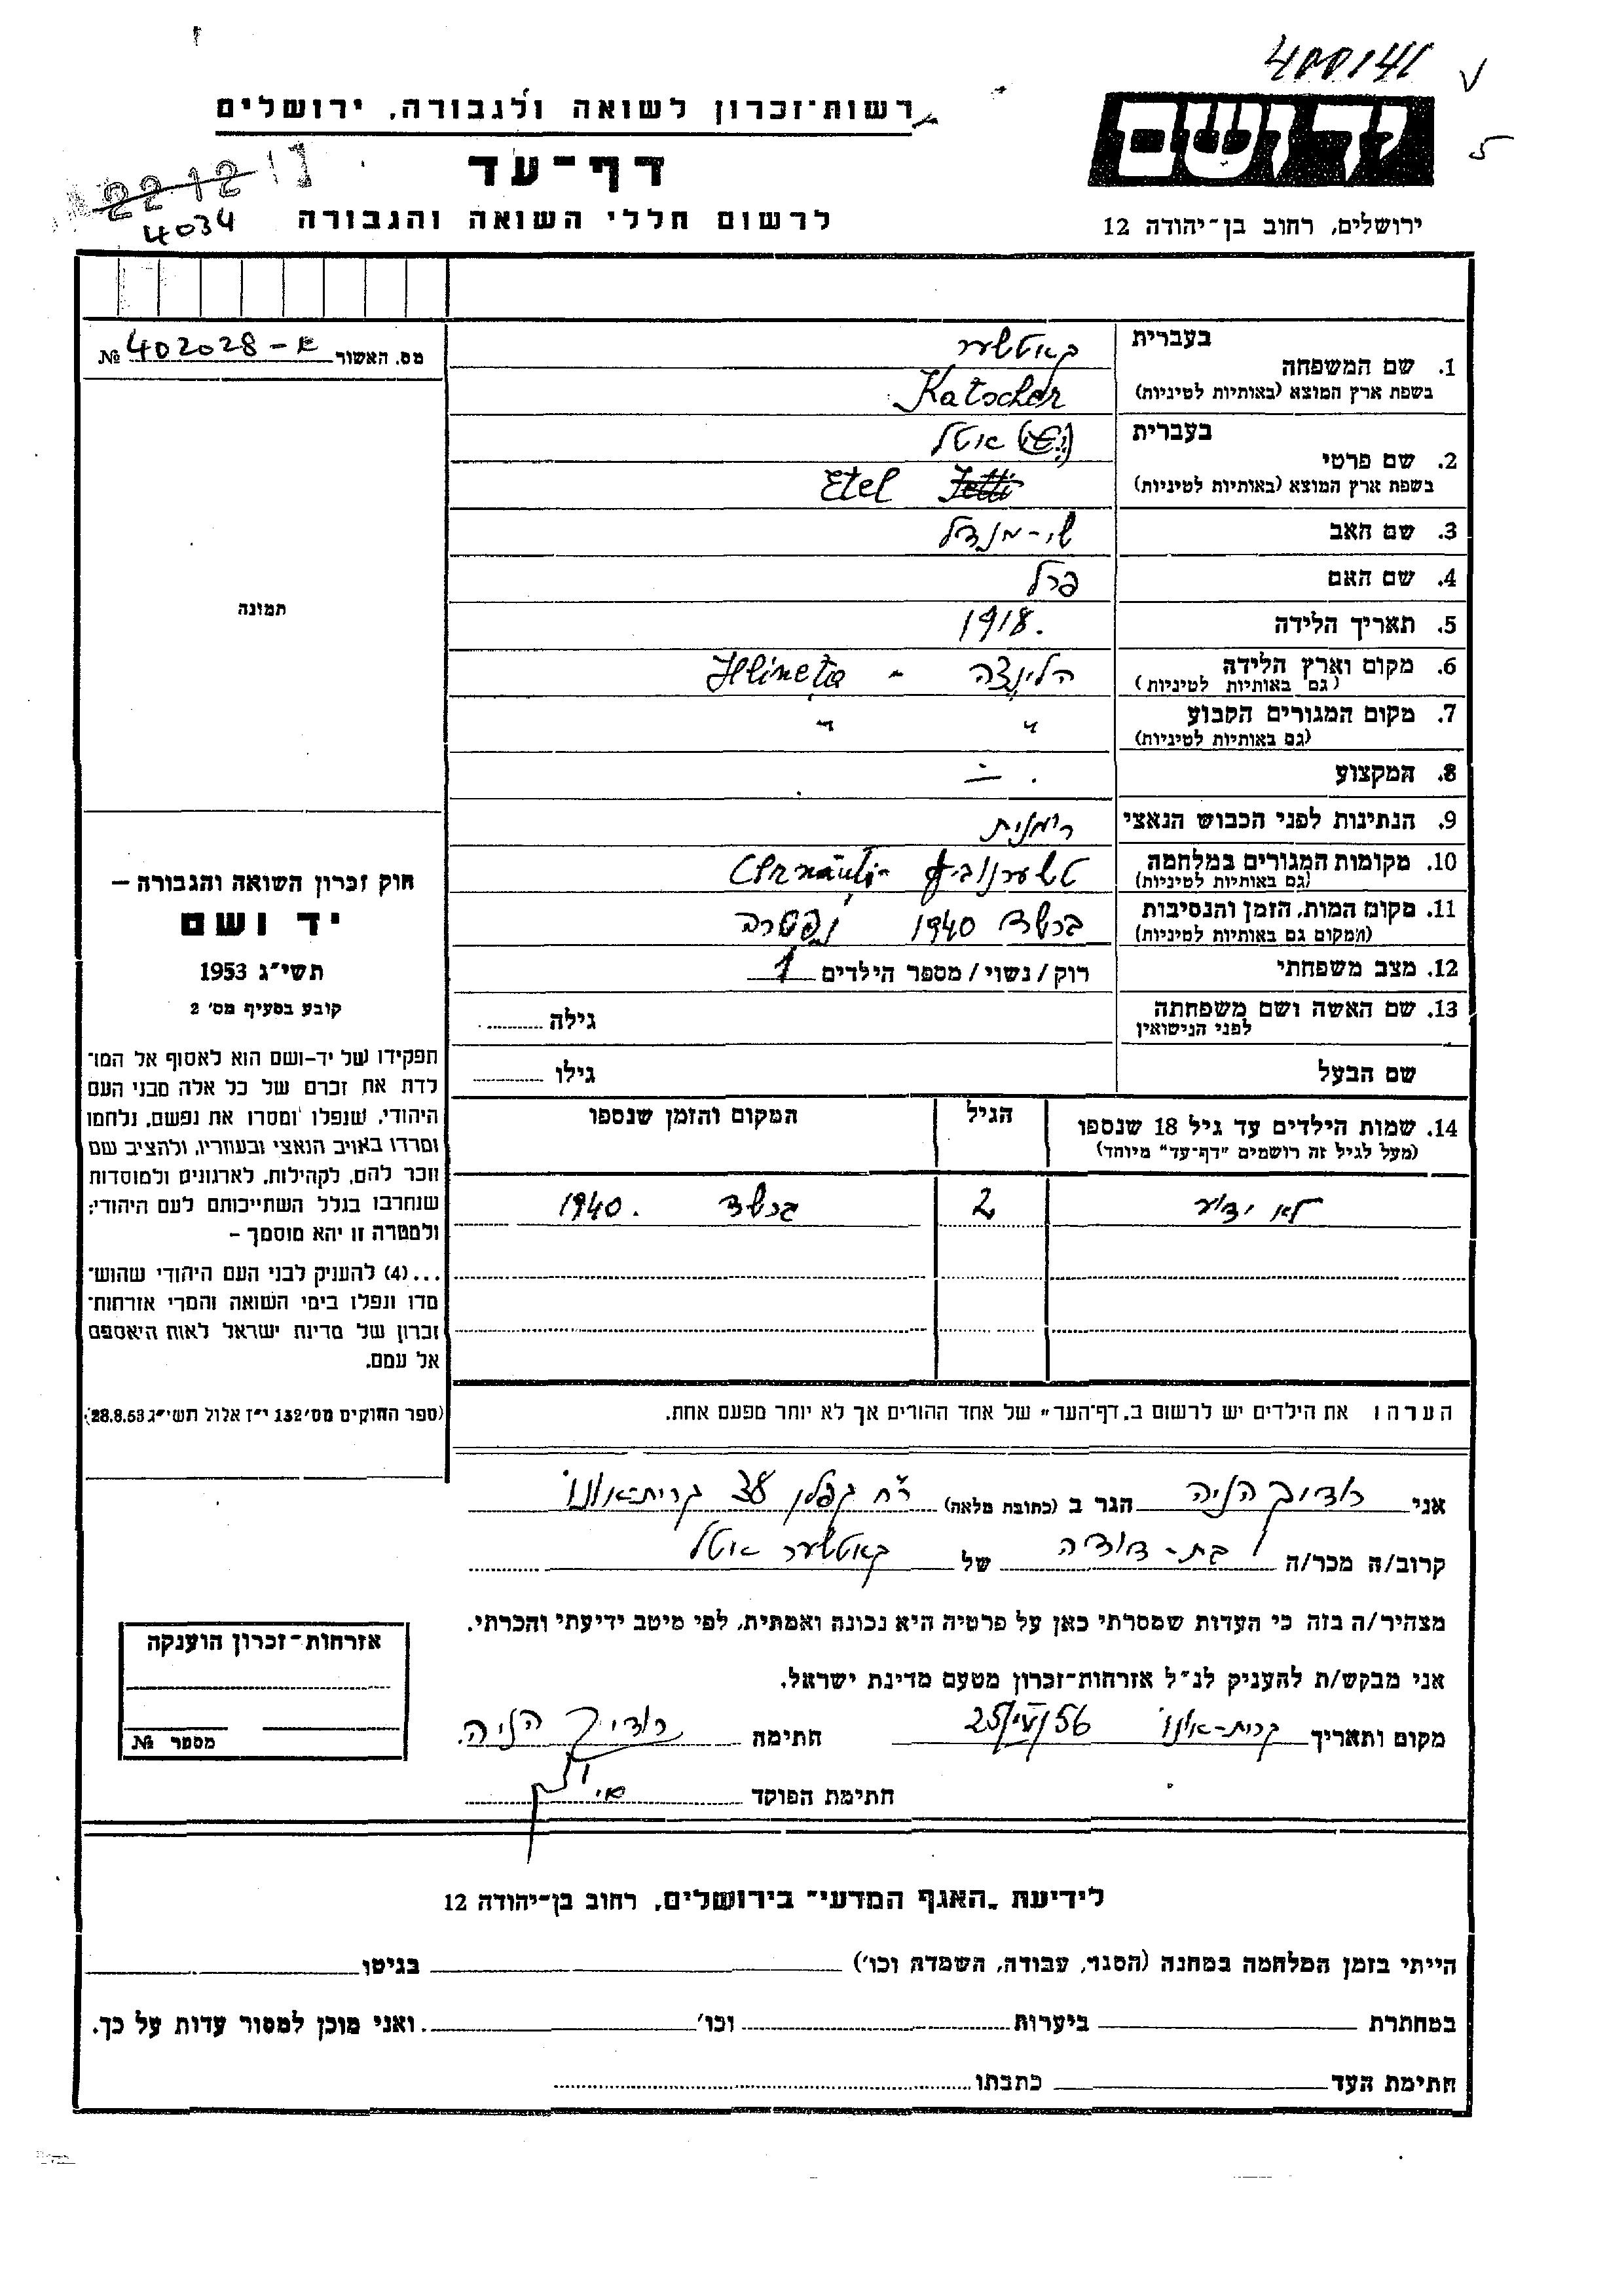 400141
רשות־זכרון לשואה ולגבורה, ירושלים
יד ושם
דף־עד
22 12
4034
לרשום חללי השואה והגבורה
ירושלים, רחוב בן־יהודה 12
מס. האשור 402028 - א №
בעברית קאטשער
1. שם המשפחה
בשפת ארץ המוצא (באותיות לטיניות) Katscher
בעברית אטל
2. שם פרטי
בשפת ארץ המוצא (באותיות לטיניות) Jetti Etel
3. שם האב שי-מנדל
4. שם האם פרל
5. תאריך הלידה 1918.
6. מקום וארץ הלידה הלינצה - Hlineţa
(גם באותיות לטיניות)
7. מקום המגורים הקבוע " "
(גם באותיות לטיניות)
8. המקצוע —
9. הנתינות לפני הכבוש הנאצי רומנית
10. מקומות המגורים במלחמה טשערנוביץ - Cernăuţi
(גם באותיות לטיניות)
11. מקום המות, הזמן והנסיבות ברשד 1940 נפטרה
(המקום גם באותיות לטיניות)
12. מצב משפחתי רוק/נשוי/מספר הילדים 1
13. שם האשה ושם משפחתה גילה
לפני הנישואין
שם הבעל גילו
14. שמות הילדים עד גיל 18 שנספו הגיל המקום והזמן שנספו
(מעל לגיל זה רושמים "דף־עד" מיוחד)
לא ידוע 2 ברשד 1940.
תמונה
חוק זכרון השואה והגבורה –
יד ושם
תשי"ג 1953
קובע בסעיף מס' 2
תפקידו של יד-ושם הוא לאסוף אל המו־
לדת את זכרם של כל אלה מבני העם
היהודי, שנפלו ומסרו את נפשם, נלחמו
ומרדו באויב הנאצי ובעוזריו, ולהציב שם
וזכר להם, לקהילות, לארגונים ולמוסדות
שנחרבו בגלל השתייכותם לעם היהודי;
ולמטרה זו יהא מוסמך –
...(4) להעניק לבני העם היהודי שהוש־
מדו ונפלו בימי השואה והמרי אזרחות־
זכרון של מדינת ישראל לאות היאספם
אל עמם.
(ספר החוקים מס' 132 י"ז אלול תשי"ג 28.8.53)
הערה: את הילדים יש לרשום ב„דף־העד" של אחד ההורים אך לא יותר מפעם אחת.
אני רודיך הניה הגר ב (כתובת מלאה) רח קפלן קרית-אונו
קרוב/ה מכר/ה בת-דודה של קאטשער אטל
מצהיר/ה בזה כי העדות שמסרתי כאן על פרטיה היא נכונה ואמתית, לפי מיטב ידיעתי והכרתי.
אני מבקש/ת להעניק לנ"ל אזרחות־זכרון מטעם מדינת ישראל.
מקום ותאריך קרית-אונו 25/VI/56 חתימה רודיך הניה.
חתימת הפוקד
אזרחות־זכרון הוענקה
מספר №
לידיעת „האגף המדעי" בירושלים, רחוב בן־יהודה 12
הייתי בזמן המלחמה במחנה (הסגר, עבודה, השמדה וכו') בגיטו
במחתרת ביערות וכו' ואני מוכן למסור עדות על כך.
חתימת העד כתבתו